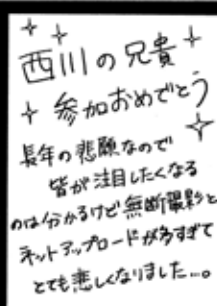 西川の兄貴
参加おめでとう
長年の悲願なので
皆が注目したくなる
のは分かるけど無断撮影と
ネットアップロードが多すぎて
とても悲しくなりました…。